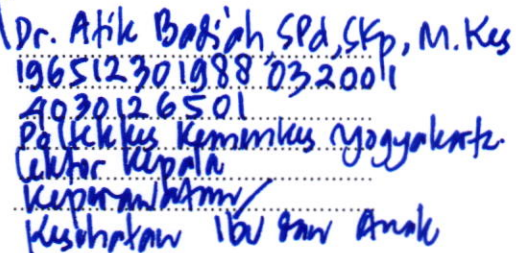 Dr. Atik Badi'ah, SPd, SKp, M.Kes
196512301988 032001
4030126501
Poltekkes Kemenkes Yogyakarta.
Lektor Kepala
Keperawatan/
Kesehatan Ibu dan Anak